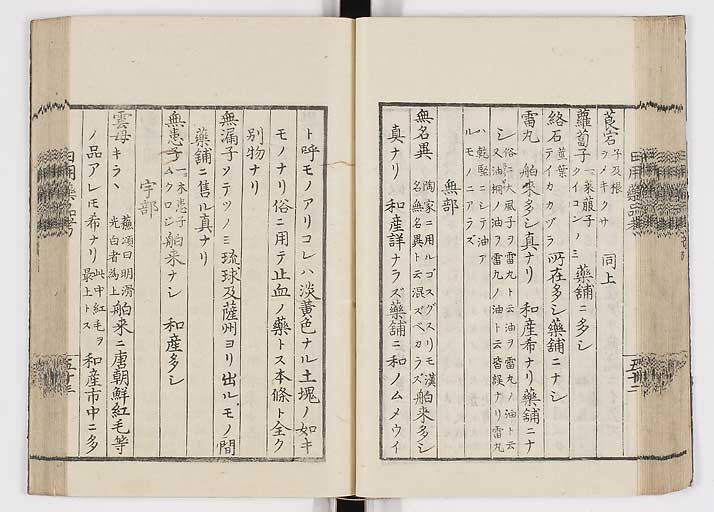 莨宕 子及根 ヲノギクサ 同上
蘿蔔子 一萊菔子 タイコンノミ 藥舖ニ多シ
絡石 莖葉 テイカカヅラ 所在多シ藥舖ニナシ
雷丸 舶來多シ真ナリ 和産希ナリ藥舖ニナ
シ 俗ニ大風子ヲ雷丸ト云油ヲ雷丸ノ油ト云
又油桐ノ油ヲ雷丸ノ油ト云皆誤ナリ雷丸
ハ乾堅ニシテ油ア
ルモノニアラズ
無部
無名異 陶家ニ用ルゴスグスリモ漢
名無名異ト云混ズベカラズ 舶來多シ
真ナリ 和産詳ナラズ藥舖ニ和ノムメウイ
ト呼モノアリコレハ淡黄色ナル土塊ノ如キ
モノナリ俗ニ用テ止血ノ藥トス本條ト全ク
別物ナリ
無漏子 ソテツノミ 琉球及薩州ヨリ出ルモノ間
藥舖ニ售ル真ナリ
無患子 一木患子 ムクロジ 舶來ナシ 和産多シ
宇部
雲母 キラヽ 蘓頌曰明滑
光白者為上 舶來ニ唐朝鮮紅毛等
ノ品アレモ希ナリ 此中紅毛ヲ
最上トス 和産市中ニ多
日用藥品考
五十二
五十三